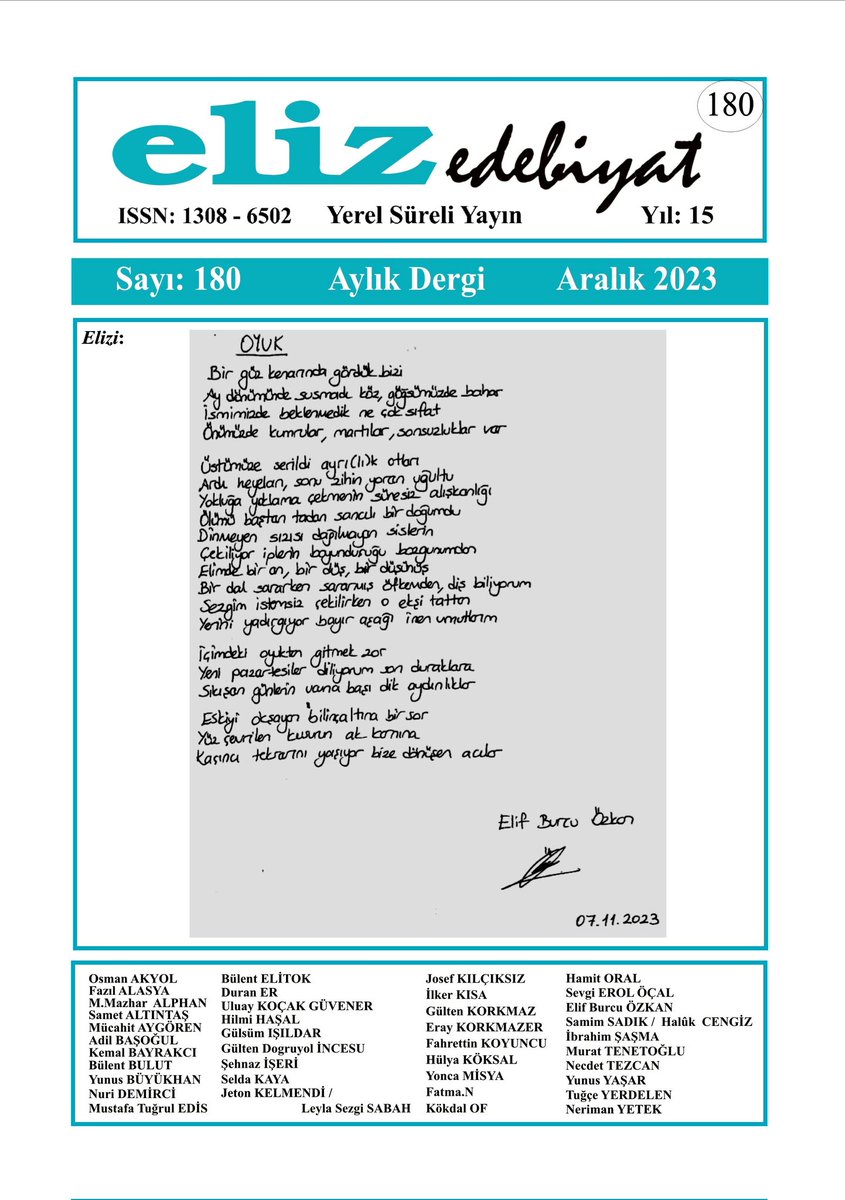 180
eliz edebiyat
ISSN: 1308 - 6502 Yerel Süreli Yayın Yıl: 15
Sayı: 180 Aylık Dergi Aralık 2023
Elizi:
OYUK
Bir göz kenarında gördük bizi
Ay dönümünde susmadı köz, göğsümüzde bahar
İsmimizde beklenmedik ne çok sıfat
Önümüzde kumrular, martılar, sonsuzluklar var
Üstümüze serildi ayrı(lı)k otları
Ardı heyelan, sonu zihin yoran uğultu
Yokluğa yoklama çekmenin süresiz alışkanlığı
Ölümü baştan tadan sancılı bir doğumdu
Dinmeyen sızısı dağılmayan sislerin
Çekiliyor iplerin boyunduruğu bozgunumdan
Elimde bir an, bir düş, bir düşünüş
Bir dal sararken sararmış öfkemden, diş biliyorum
Sezgim istemsiz çekilirken o ekşi tattan
Yerini yadırgıyor bayır aşağı inen umutlarım
İçimdeki oyuktan gitmek zor
Yeni pazartesiler diliyorum son duraklara
Sıkışan günlerin varna başı dik aydınlıklar
Eskiyi okşayan bilinçaltına bir sor
Yüz çevrilen kusurun ak karnına
Kaçıncı tekrarını yaşıyor bize dönüşen acılar
Elif Burcu Özkan
07.11.2023
Osman AKYOL
Fazıl ALASYA
M.Mazhar ALPHAN
Samet ALTINTAŞ
Mücahit AYGÖREN
Adil BAŞOĞUL
Kemal BAYRAKCI
Bülent BULUT
Yunus BÜYÜKHAN
Nuri DEMİRCİ
Mustafa Tuğrul EDİS
Bülent ELİTOK
Duran ER
Uluay KOÇAK GÜVENER
Hilmi HAŞAL
Gülsüm IŞILDAR
Gülten Dogruyol İNCESU
Şehnaz İŞERİ
Selda KAYA
Jeton KELMENDİ /
Leyla Sezgi SABAH
Josef KILÇIKSIZ
İlker KISA
Gülten KORKMAZ
Eray KORKMAZER
Fahrettin KOYUNCU
Hülya KÖKSAL
Yonca MİSYA
Fatma.N
Kökdal OF
Hamit ORAL
Sevgi EROL ÖÇAL
Elif Burcu ÖZKAN
Samim SADIK / Halûk CENGİZ
İbrahim ŞAŞMA
Murat TENETOĞLU
Necdet TEZCAN
Yunus YAŞAR
Tuğçe YERDELEN
Neriman YETEK